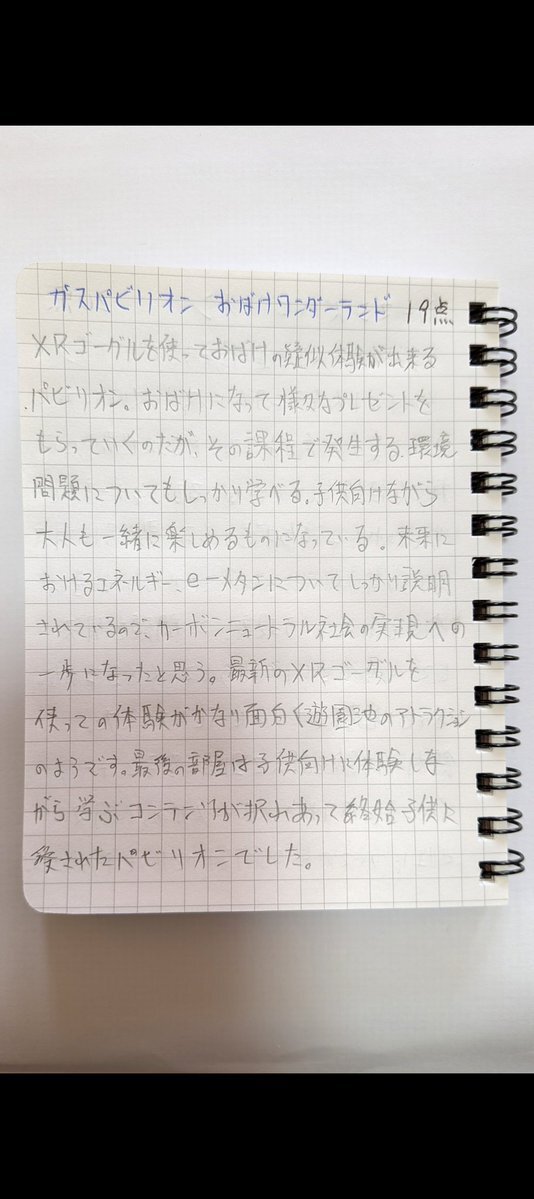 ガスパビリオン おばけワンダーランド 19点
XRゴーグルを使っておばけの疑似体験が出来る
パビリオン。おばけになって様々なプレゼントを
もらっていくのだが、その課程で発生する環境
問題についてもしっかり学べる。子供向けながら
大人も一緒に楽しめるものになっている。未来に
おけるエネルギー、e-メタンについてしっかり説明
されているので、カーボンニュートラル社会の実現への
一歩になったと思う。最新のXRゴーグルを
使っての体験がかなり面白く遊園池のアトラクション
のようです。最後の部屋は子供向けに体験しな
がら学ぶコンテンツが折れあって終始子供に
癒されたパビリオンでした。